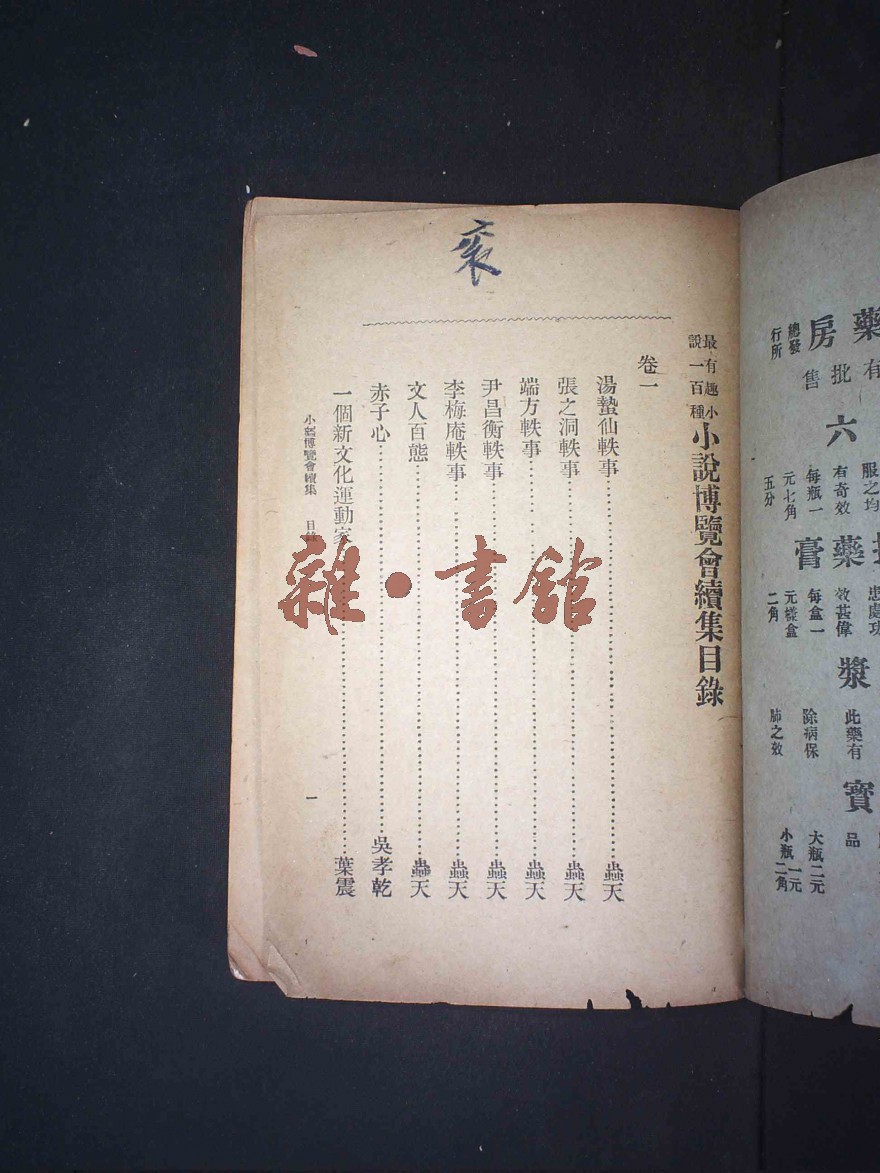 藥房
總發
行所
有批售
六
服之均
有奇效
每瓶一
元七角
五分
藥膏
患處功
效甚偉
每盒一
元樣盒
二角
漿
此藥有
除病保
肺之效
寶
品
大瓶二元
小瓶一元
二角
最有趣小
說一百種
小說博覽會續集目錄
卷一
湯蟄仙軼事……蟲天
張之洞軼事……蟲天
端方軼事……蟲天
尹昌衡軼事……蟲天
李梅庵軼事……蟲天
文人百態……蟲天
赤子心……吳孝乾
一個新文化運動家……葉震
小說博覽會續集 目錄
一
雜·書館